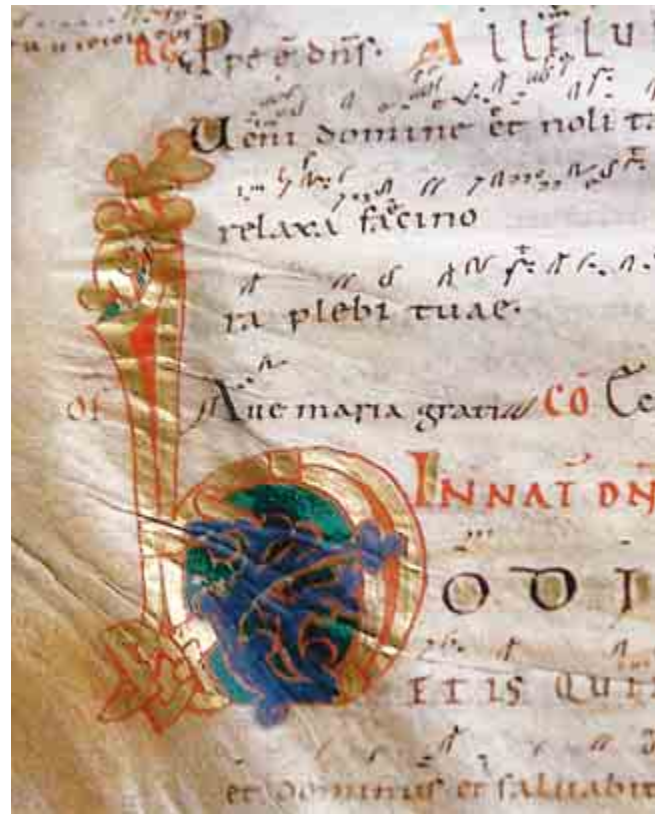 RG Ppe ē dn̄s. ALLELU
Ueni domine et noli ta
relaxa facino
ra plebi tuae.
Of Aue maria gratia CŌ Ce
IN NAT DN̄
hODI
ETIS QUI
et dominus et saluabit